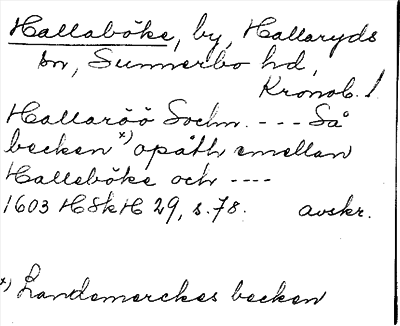 Hallaböke, by, Hallaryds
sn, Sunnerbo hd,
Kronob. l
Hallaröö Sochn. --- Så
becken *) opåth emellan
Halleböke och ----
1603 HSkH 29, s. 78. avskr.
*) Landemerckes becken